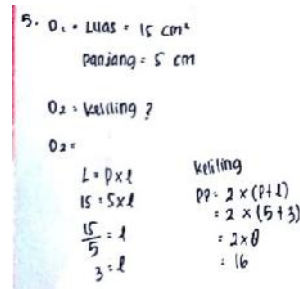 5. D1 = Luas = 15 cm²
Panjang = 5 cm
D2 = Keliling ?
D2 =
L = P x l
15 = 5 x l
15/5 = l
3 = l
keliling
PP = 2 x (P + l)
= 2 x (5 + 3)
= 2 x 8
= 16